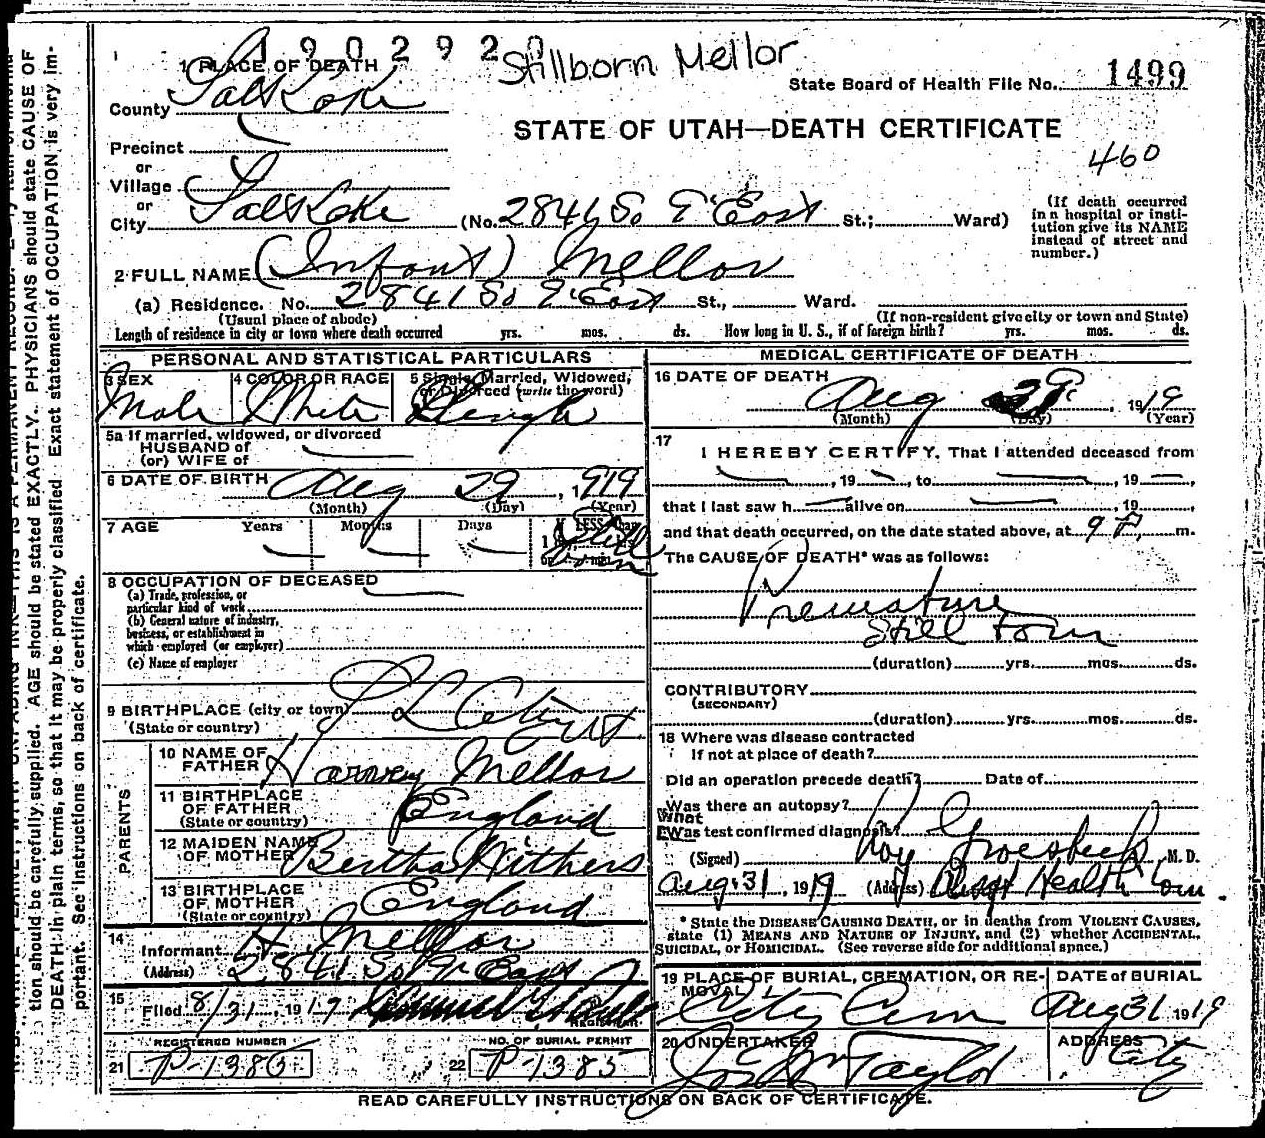 190292
Stillborn Mellor
1 PLACE OF DEATH
State Board of Health File No. 1499
County Salt Lake
STATE OF UTAH—DEATH CERTIFICATE
460
Precinct
or
Village
or
City Salt Lake (No. 2841 So 9" East St.; Ward)
(If death occurred
in a hospital or insti-
tution give its NAME
instead of street and
number.)
2 FULL NAME (Infant) Mellor
(a) Residence. No. 2841 So 9" East St., Ward.
(Usual place of abode) (If non-resident give city or town and State)
Length of residence in city or town where death occurred yrs. mos. ds. How long in U. S., if of foreign birth? yrs. mos. ds.
PERSONAL AND STATISTICAL PARTICULARS
3 SEX 4 COLOR OR RACE 5 Single, Married, Widowed,
or Divorced (write the word)
Male White Single
5a If married, widowed, or divorced
HUSBAND of
(or) WIFE of
6 DATE OF BIRTH Aug 29, 1919
(Month) (Day) (Year)
7 AGE Years Months Days If LESS than
Still
born
8 OCCUPATION OF DECEASED
(a) Trade, profession, or
particular kind of work
(b) General nature of industry,
business, or establishment in
which employed (or employer)
(c) Name of employer
9 BIRTHPLACE (city or town) S L City
(State or country) Ut
PARENTS
10 NAME OF
FATHER Harvey Mellor
11 BIRTHPLACE
OF FATHER England
(State or country)
12 MAIDEN NAME
OF MOTHER Bertha Withers
13 BIRTHPLACE
OF MOTHER England
(State or country)
14
Informant H. Mellor
(Address) 2841 So 9" East
15
Filed 8/31, 1919
REGISTRAR
REGISTERED NUMBER NO. OF BURIAL PERMIT
21 P-1385 22 P-1385
MEDICAL CERTIFICATE OF DEATH
16 DATE OF DEATH
Aug 29, 1919
(Month) (Day) (Year)
17
I HEREBY CERTIFY, That I attended deceased from
, 19 , to , 19 ,
that I last saw h alive on , 19 ,
and that death occurred, on the date stated above, at 9 P. m.
The CAUSE OF DEATH* was as follows:
Premature
Still born
(duration) yrs. mos. ds.
CONTRIBUTORY
(SECONDARY)
(duration) yrs. mos. ds.
18 Where was disease contracted
If not at place of death?
Did an operation precede death? Date of
Was there an autopsy?
What
Was test confirmed diagnosis?
(Signed) Roy Groesbeck, M. D.
Aug 31, 1919 (Address) Asst Health Com
* State the DISEASE CAUSING DEATH, or in deaths from VIOLENT CAUSES,
state (1) MEANS AND NATURE OF INJURY, and (2) whether ACCIDENTAL,
SUICIDAL, or HOMICIDAL. (See reverse side for additional space.)
19 PLACE OF BURIAL, CREMATION, OR RE-
MOVAL DATE of BURIAL
City Cem Aug 31 1919
20 UNDERTAKER ADDRESS
Jos Wm Taylor City
READ CAREFULLY INSTRUCTIONS ON BACK OF CERTIFICATE.
tion should be carefully supplied. AGE should be stated EXACTLY. PHYSICIANS should state CAUSE OF
DEATH in plain terms, so that it may be properly classified. Exact statement of OCCUPATION is very im-
portant. See instructions on back of certificate.